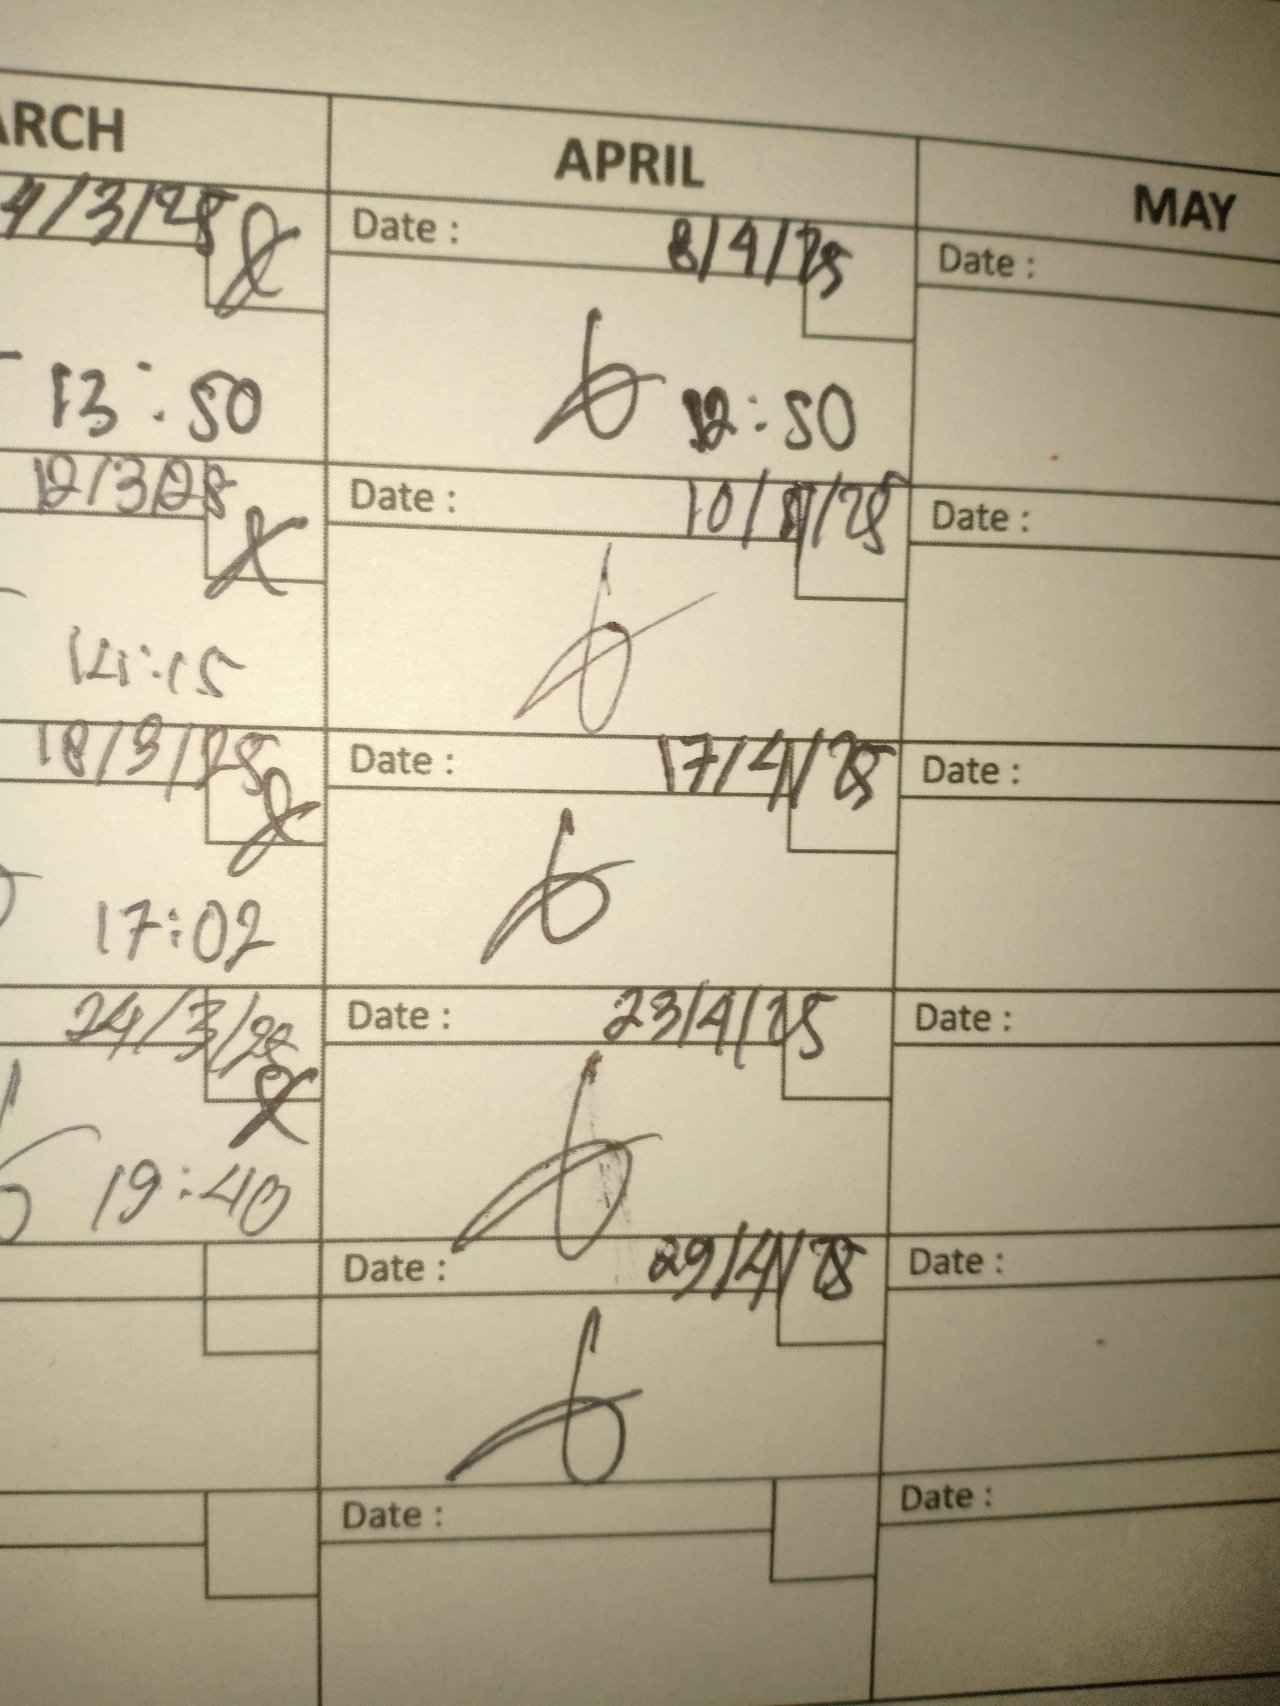 ARCH APRIL MAY
4/3/25 Date : 8/4/25 Date :
13:50 12:50
12/3/25 Date : 10/4/25 Date :
14:15
18/3/25 Date : 17/4/25 Date :
17:02
24/3/25 Date : 23/4/25 Date :
19:40
Date : 29/4/25 Date :
Date : Date :